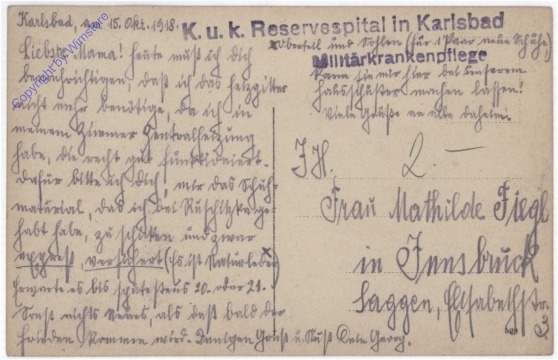 Karlsbad, am 15. Okt. 1918.
K. u. k. Reservespital in Karlsbad
Militärkrankenpflege
Liebste Mama! Heute muß ich dich
benachrichtigen, daß ich das Heizgitter
nicht mehr benötige, da ich in
meinem Zimmer Zentralheizung
habe, die recht gut funktioniert.
Dafür bitte ich dich, mir das Schuh-
material, das ich bei
habt habe, zu schicken und zwar
express, versichert (Es ist Naturleder x
Erwarte es bis spätestens 20. oder 21.
Sonst nichts Neues, als daß bald der
Frieden kommen wird. Gruß u. Kuß Dein Georg.
x Oberteil und Sohlen (für 1 Paar neue Schuhe)
kann sie mir hier bei unserem
Hausschuster machen lassen!
Viele Grüße an alle daheim!
2.—
Frau Mathilde Fiegl
in Innsbruck
Saggen, Elisabethstr.
3.
Copyright by Wimstore